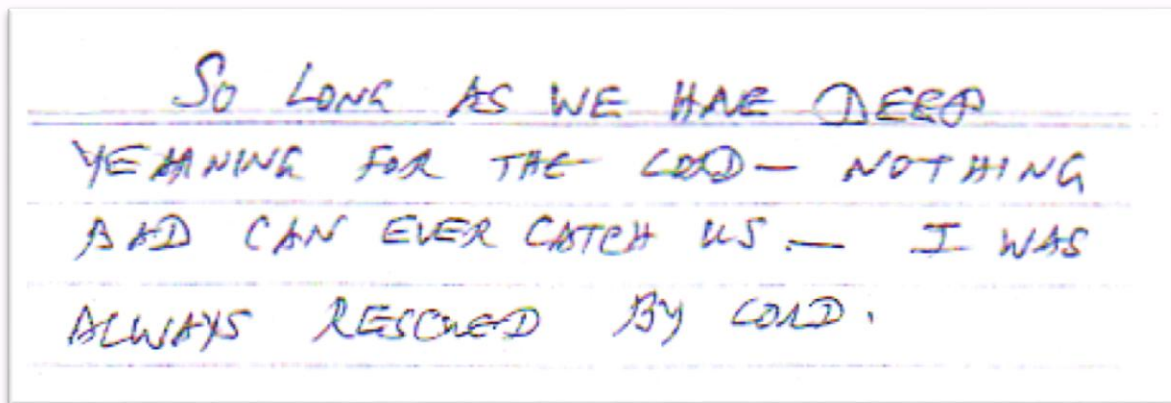 So LONG AS WE HAVE DEEP
YEARNING FOR THE LORD - NOTHING
BAD CAN EVER CATCH US. - I WAS
ALWAYS RESCUED BY LORD.